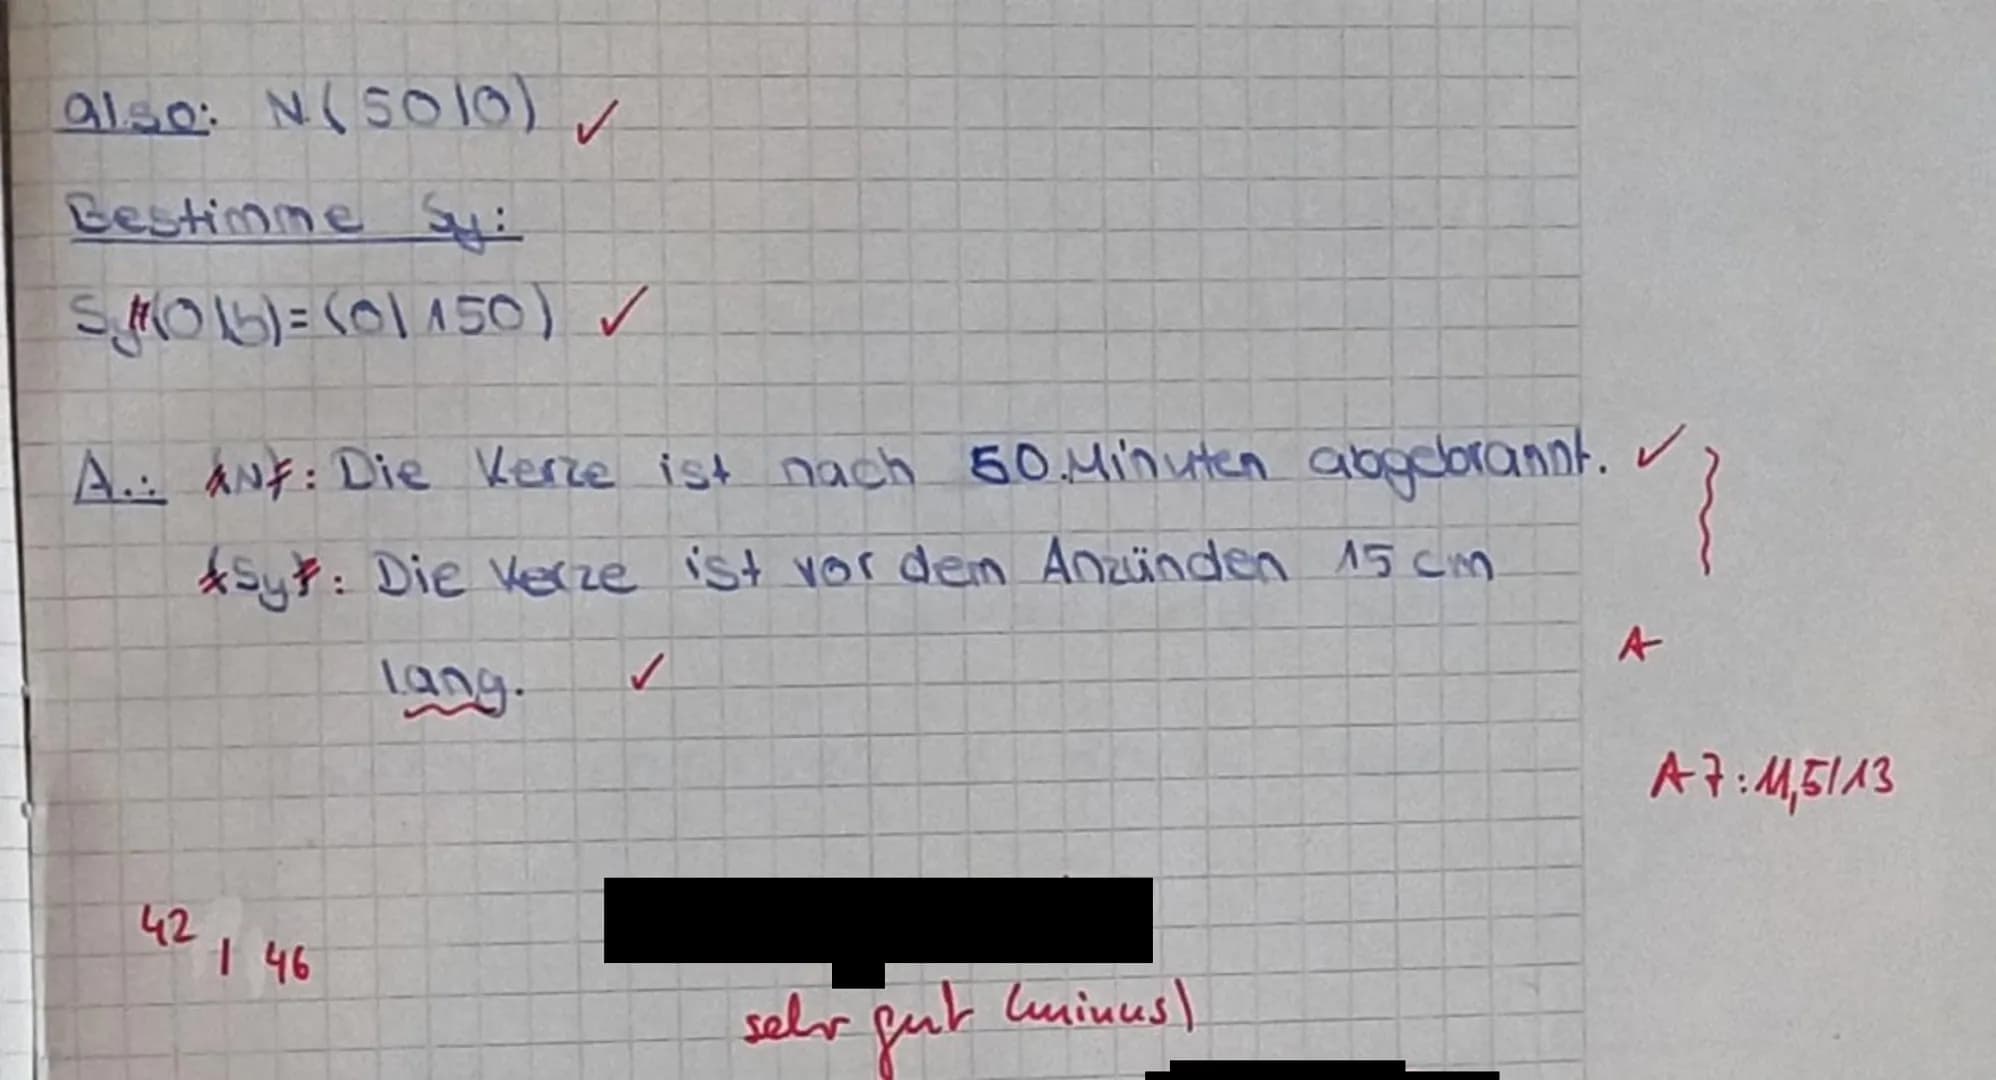 also: N(50|0) ✓
Bestimme Sy:
Sy(0|b)=(0|150) ✓
A.: N: Die Kerze ist nach 50 Minuten abgebrannt. ✓
Sy: Die Kerze ist vor dem Anzünden 15 cm
lang. ✓
A
A7: 11,5/13
42 / 46
sehr gut (minus)